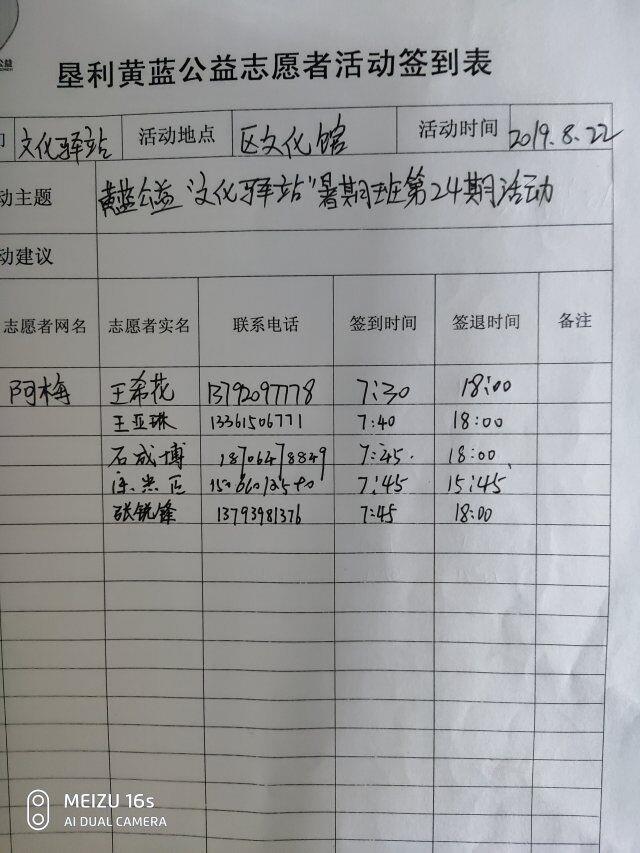 公益
垦利黄蓝公益志愿者活动签到表
文化驿站 活动地点 区文化馆 活动时间 2019.8.22
动主题 黄蓝公益“文化驿站”暑期班第24期活动
动建议
志愿者网名 志愿者实名 联系电话 签到时间 签退时间 备注
阿梅 王希花 13792097778 7:30 18:00
王亚珠 13361506771 7:40 18:00
石成博 18706478849 7:45. 18:00
7:45 15:45
张锐锋 13793981376 7:45 18:00
MEIZU 16s
AI DUAL CAMERA